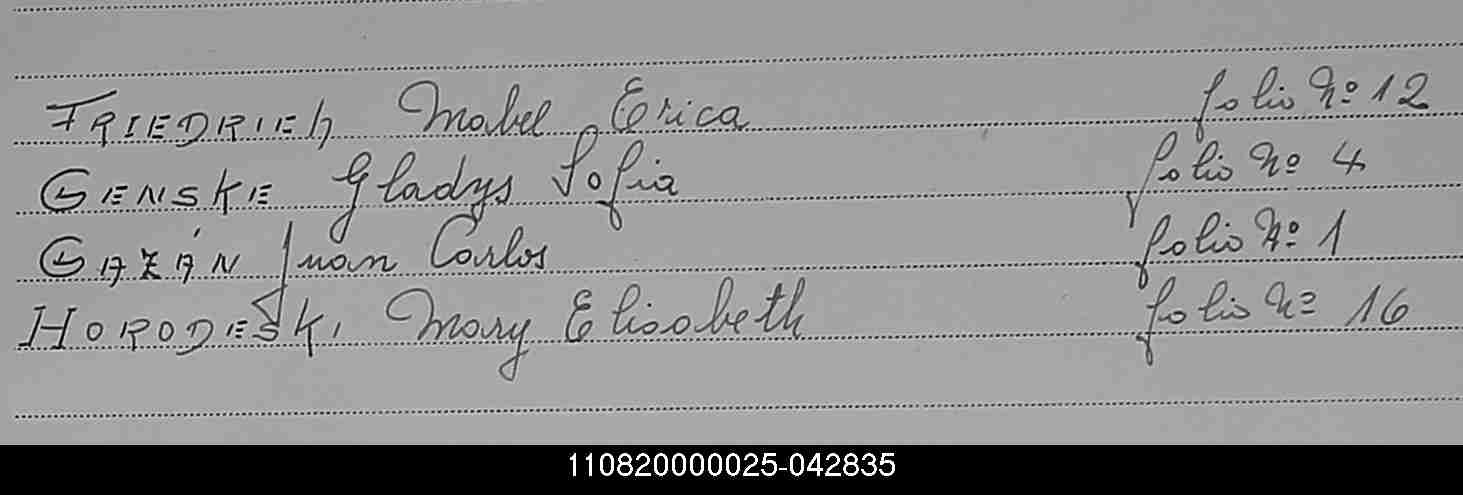 FRIEDRICH Mabel Erica folio Nº 12
GENSKE Gladys Sofia folio Nº 4
GAZÁN Juan Carlos folio Nº 1
HORODESKI Mary Elisabeth folio Nº 16
110820000025-042835